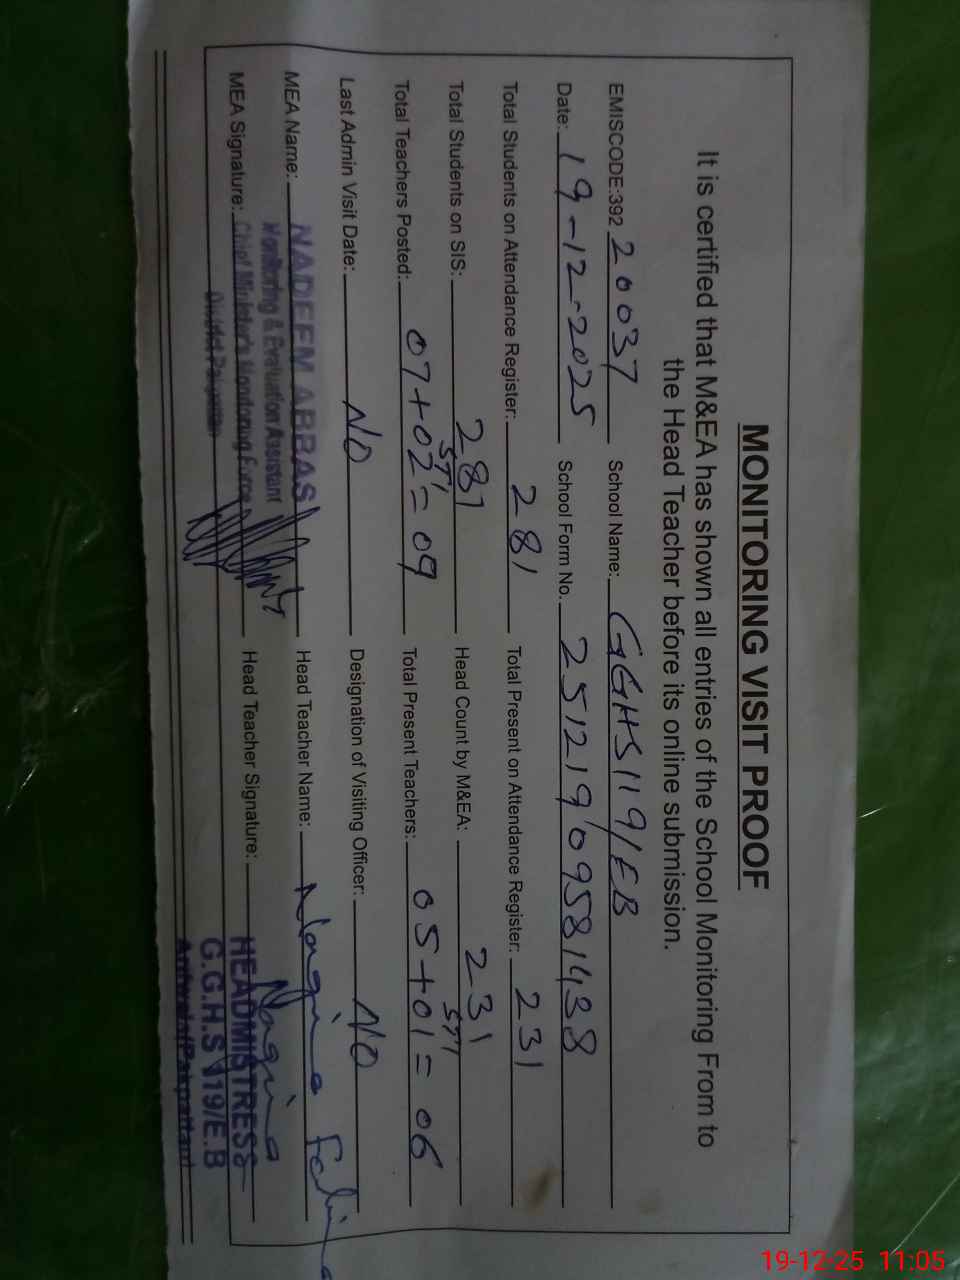 MONITORING VISIT PROOF
It is certified that M&EA has shown all entries of the School Monitoring From to
the Head Teacher before its online submission.
EMISCODE:392 20037 School Name: GGHS 119/EB
Date: 19-12-2025 School Form No. 25121909581438
Total Students on Attendance Register: 281 Total Present on Attendance Register: 231
Total Students on SIS: 281 Head Count by M&EA: 231
Total Teachers Posted: 07+02=09 Total Present Teachers: 05+01=06
Last Admin Visit Date: NO Designation of Visiting Officer: NO
MEA Name: NADEEM ABBAS Head Teacher Name: Nagina
Monitoring & Evaluation Assistant
MEA Signature: Chief Minister's Monitoring Force Head Teacher Signature: Nagina
District Pakpattan
HEADMISTRESS
G.G.H.S 119/E.B
19-12-25 11:05